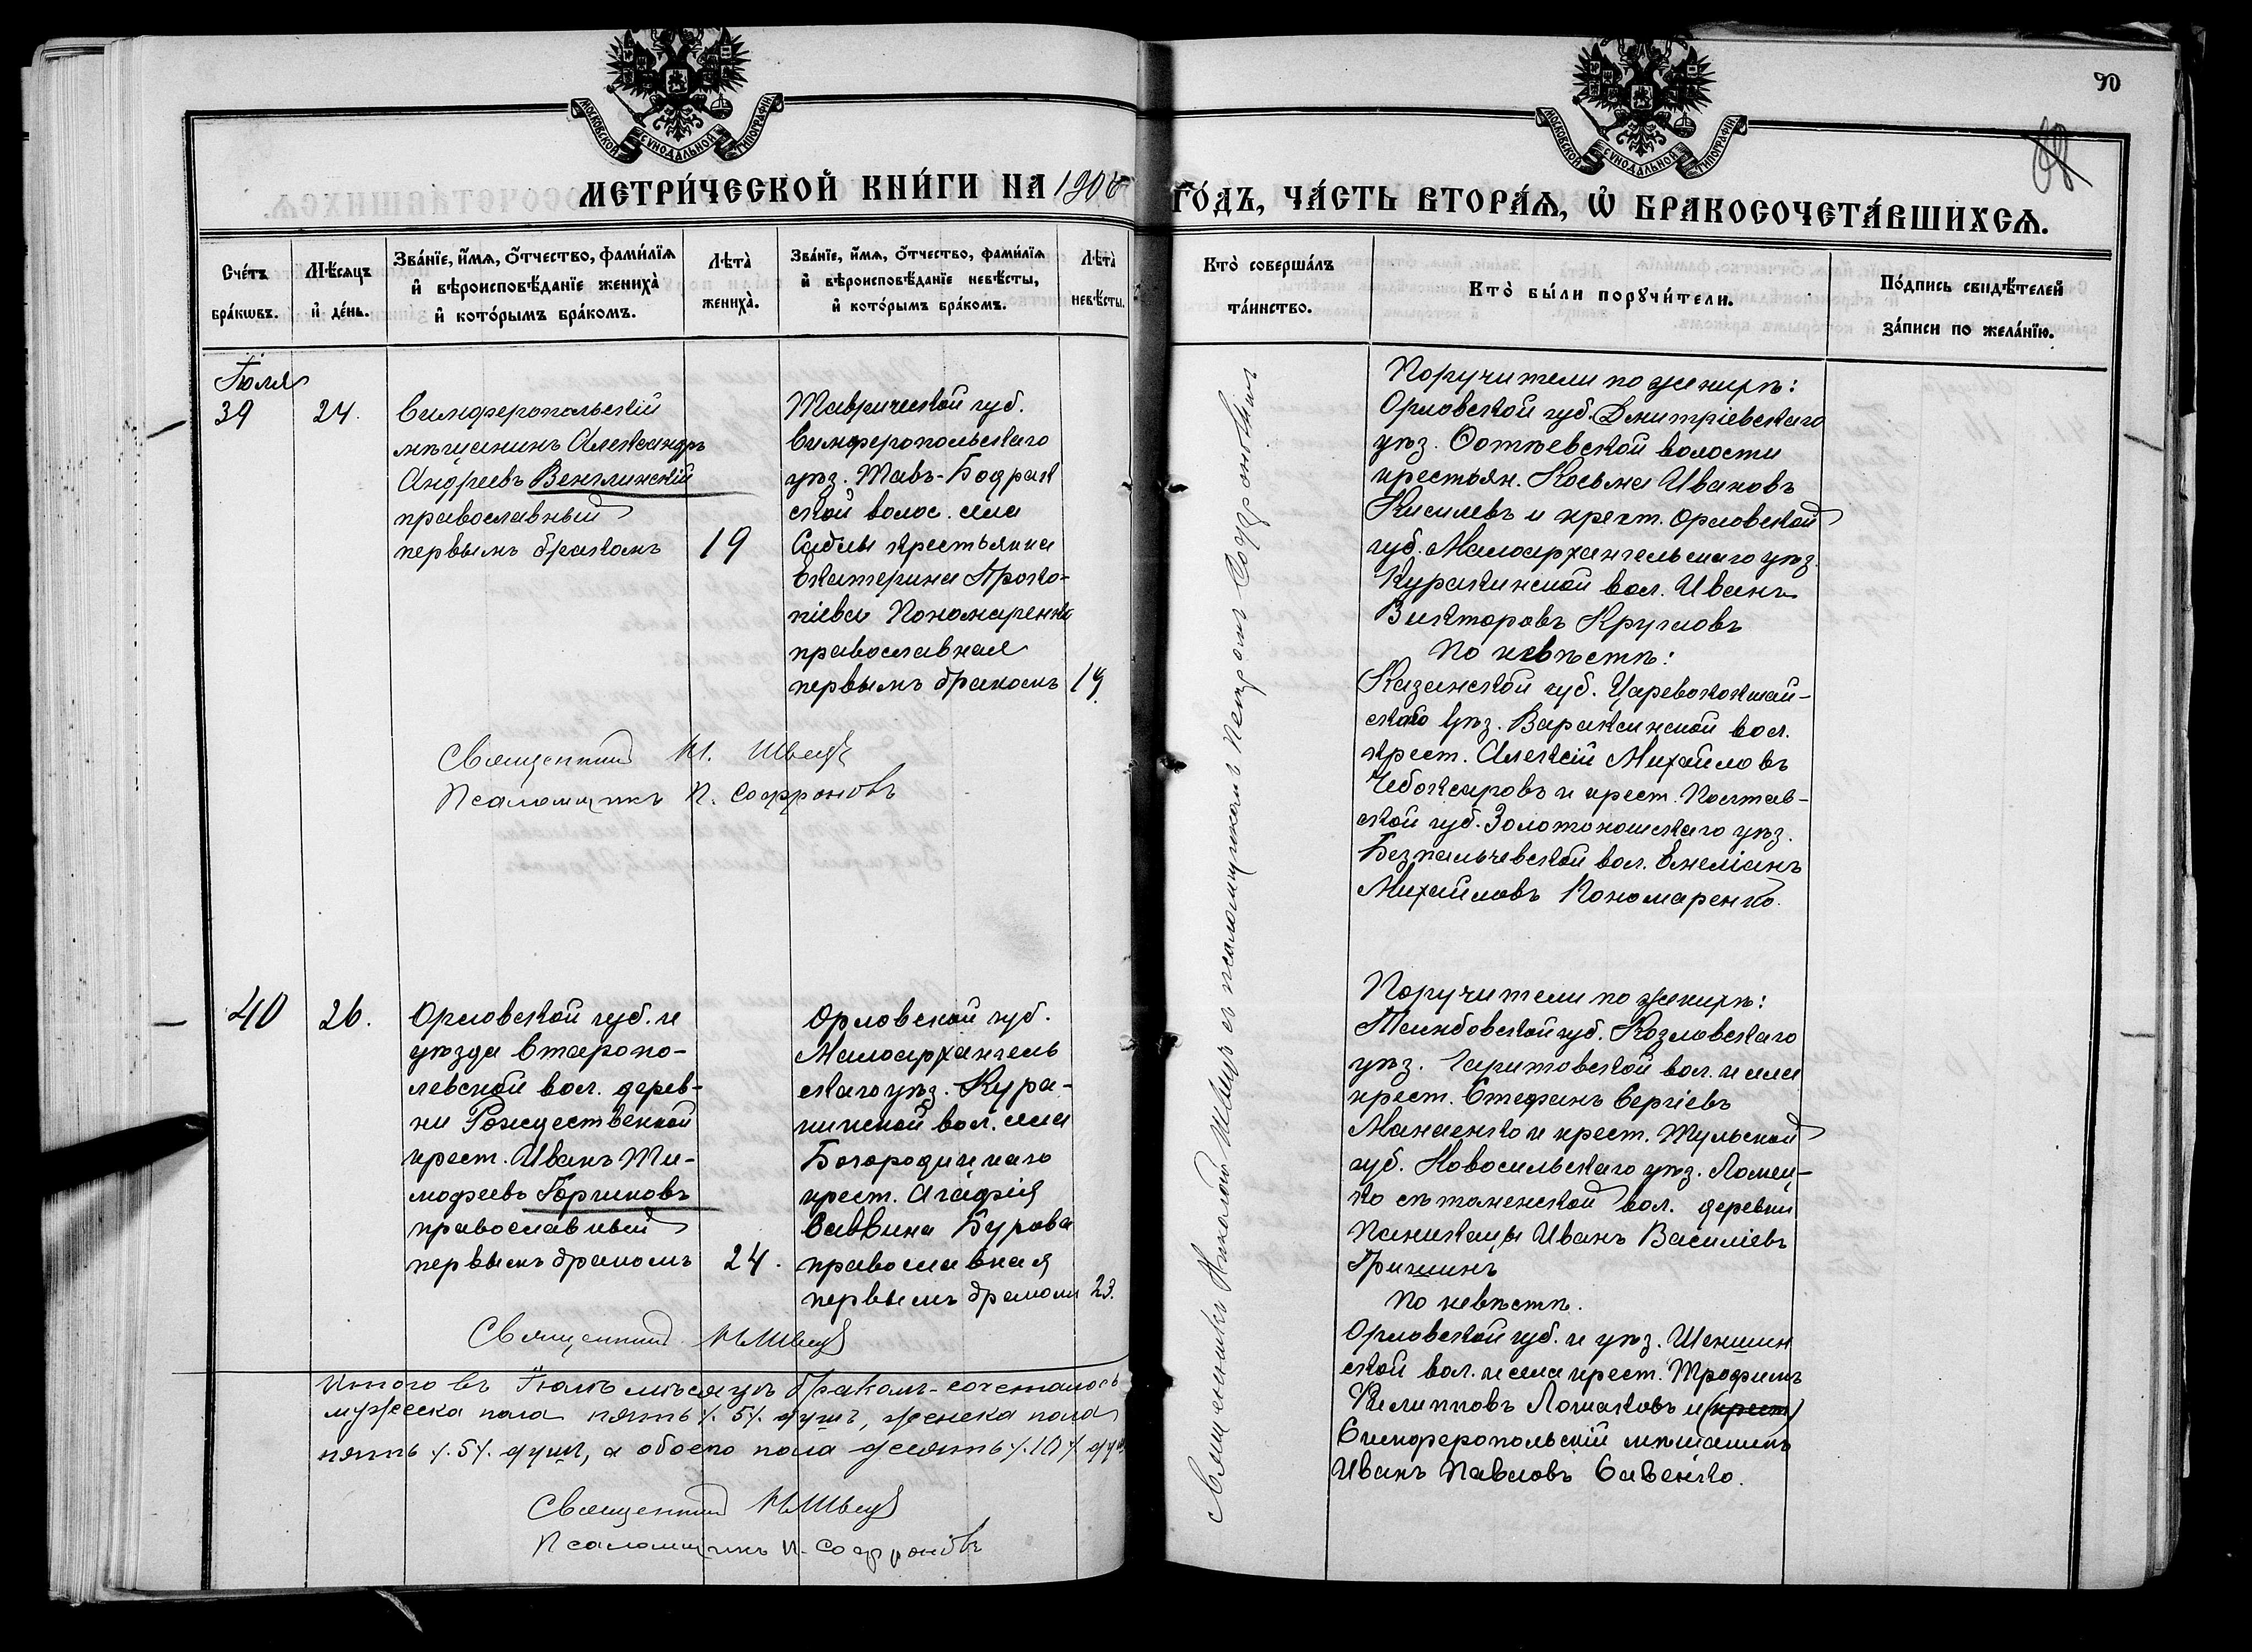 90
МОСКОВСКОЙ СѴНОДАЛЬНОЙ ТИПОГРАФІИ
МОСКОВСКОЙ СѴНОДАЛЬНОЙ ТИПОГРАФІИ
МЕТРИ́ЧЕСКОЙ КНИ́ГИ НА 190
ГО́ДЪ, ЧА́СТЬ ВТОРА́Ѧ, Ѽ БРАКОСОЧЕТА́ВШИХСѦ.
Сче́тъ бра́кѡвъ.
Мѣ́сяцъ и́ де́нь.
Зва́нїе, и́мѧ, ѻ҆́тчество, фами́лїѧ
и́ вѣроисповѣ́данїе жениха̀
и́ кото́рымъ бра́комъ.
Лѣта̀ жениха̀.
Зва́нїе, и́мѧ, ѻ҆́тчество, фами́лїѧ
и́ вѣроисповѣ́данїе невѣ́сты,
и́ кото́рымъ бра́комъ.
Лѣта̀ невѣ́сты.
Кто̀ соверша́лъ та́инство.
Кто̀ бы́ли порꙋчи́тели.
По́дпись свидѣ́телей за́писи по жела́нїю.
Іюля
39
24.
Симферопольскій
мѣщанинъ Александръ
Андреевъ Венглинскій
православный
первымъ бракомъ
19
Таврической губ.
Симферопольскаго
уѣз. Тавъ-Бодрак
ской волос. села
Саблы крестьянка
Екатерина Проко-
піева Пономаренко
православная
первымъ бракомъ
19.
Священникъ Н. Швецъ
Псаломщикъ П. Софроновъ
Священникъ Николай Швецъ съ псаломщикомъ Петромъ Софроновымъ
Поручители по женихѣ:
Орловской губ. Дмитріевскаго
уѣз. волости
крестьян. Косьма Ивановъ
Киселевъ и крест. Орловской
губ. Малоархангельскаго уѣз.
Куракинской вол. Иванъ
Викторовъ Кругловъ
По невѣстѣ:
Казанской губ. Царевококшай-
скаго уѣз. Вараксинской вол.
крест. Алексій Михайловъ
Чебоксаровъ и крест. Полтав-
ской губ. Золотоношскаго уѣз.
Безпальчевской вол. Емеліанъ
Михайловъ Пономаренко.
40
26.
Орловской губ. и
уѣзда Старопо-
левской вол. дерев-
ни Рождественской
крест. Иванъ Ти-
мофеевъ Горшковъ
православный
первымъ бракомъ
24.
Орловской губ.
Малоархангель
скаго уѣз. Кура-
кинской вол. села
Богородицкаго
крест. Агафія
Саввина Бурова
православная
первымъ бракомъ
23.
Священникъ Н. Швецъ
Поручители по женихѣ:
Тамбовской губ. Козловскаго
уѣз. вол. и села
крест. Стефанъ Сергіевъ
Манаенко и крест. Тульской
губ. Новосильскаго уѣз. Ломец-
ко вол. деревни
Паниковцы Иванъ Василіевъ
Гришинъ
По невѣстѣ.
Орловской губ. и уѣз. Шеншин
ской вол. и села крест. Трофимъ
Филипповъ Лошаковъ и (крест)
Симферопольскій мѣщанинъ
Иванъ Павловъ Савенко.
Итого въ Іюлѣ мѣсяцѣ бракомъ-сочеталось
мужеска пола пять /.5/. душъ, женска пола
пять /.5/. душъ, а обоего пола десять /.10/. душ
Священникъ Н. Швецъ
Псаломщикъ П. Софроновъ